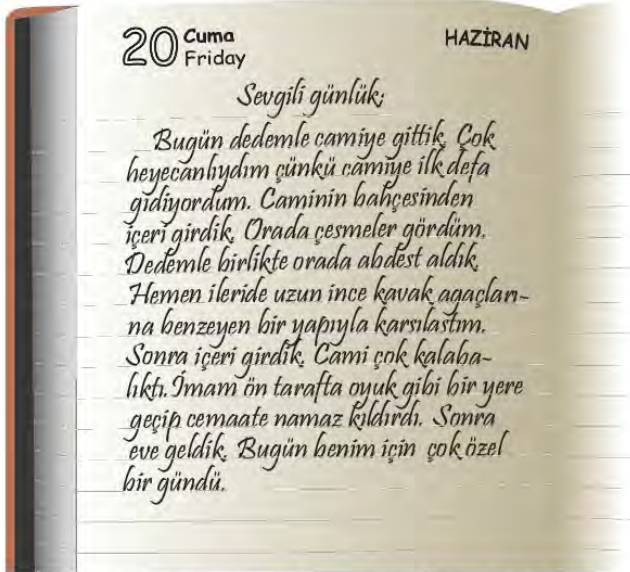 20 Cuma
Friday
HAZİRAN
Sevgili günlük;
Bugün dedemle camiye gittik. Çok
heyecanlıydım çünkü camiye ilk defa
gidiyordum. Caminin bahçesinden
içeri girdik. Orada çeşmeler gördüm.
Dedemle birlikte orada abdest aldık.
Hemen ileride uzun ince kavak ağaçları-
na benzeyen bir yapıyla karsılastım.
Sonra içeri girdik. Cami çok kalaba-
lıktı. İmam ön tarafta oyuk gibi bir yere
geçip cemaate namaz kıldırdı. Sonra
eve geldik. Bugün benim için çok özel
bir gündü.